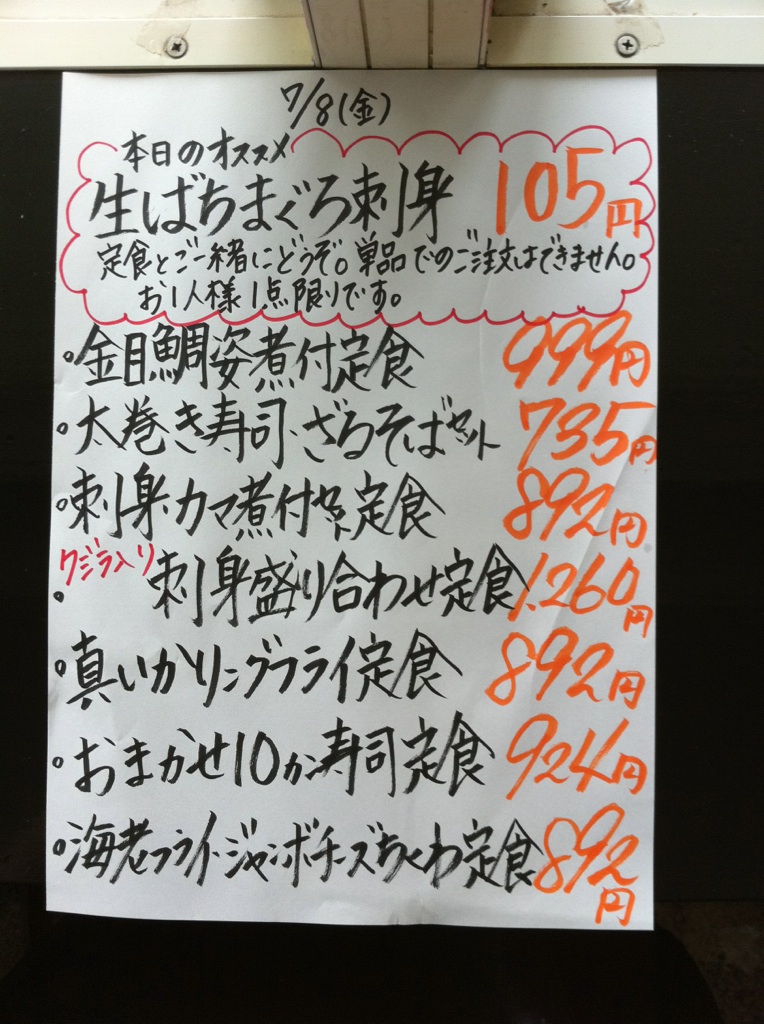 7/8(金)
本日のオススメ
生ばちまぐろ刺身 105円
定食とご一緒にどうぞ。単品でのご注文はできません。
お1人様1点限りです。
。金目鯛姿煮付定食 999円
。太巻き寿司・ざるそばセット 735円
。刺身・カマ煮付セット定食 892円
クジラ入り
。刺身盛り合わせ定食 1.260円
。真いかリングフライ定食 892円
。おまかせ10カン寿司定食 924円
。海老フライ・ジャンボチーズちくわ定食 892円